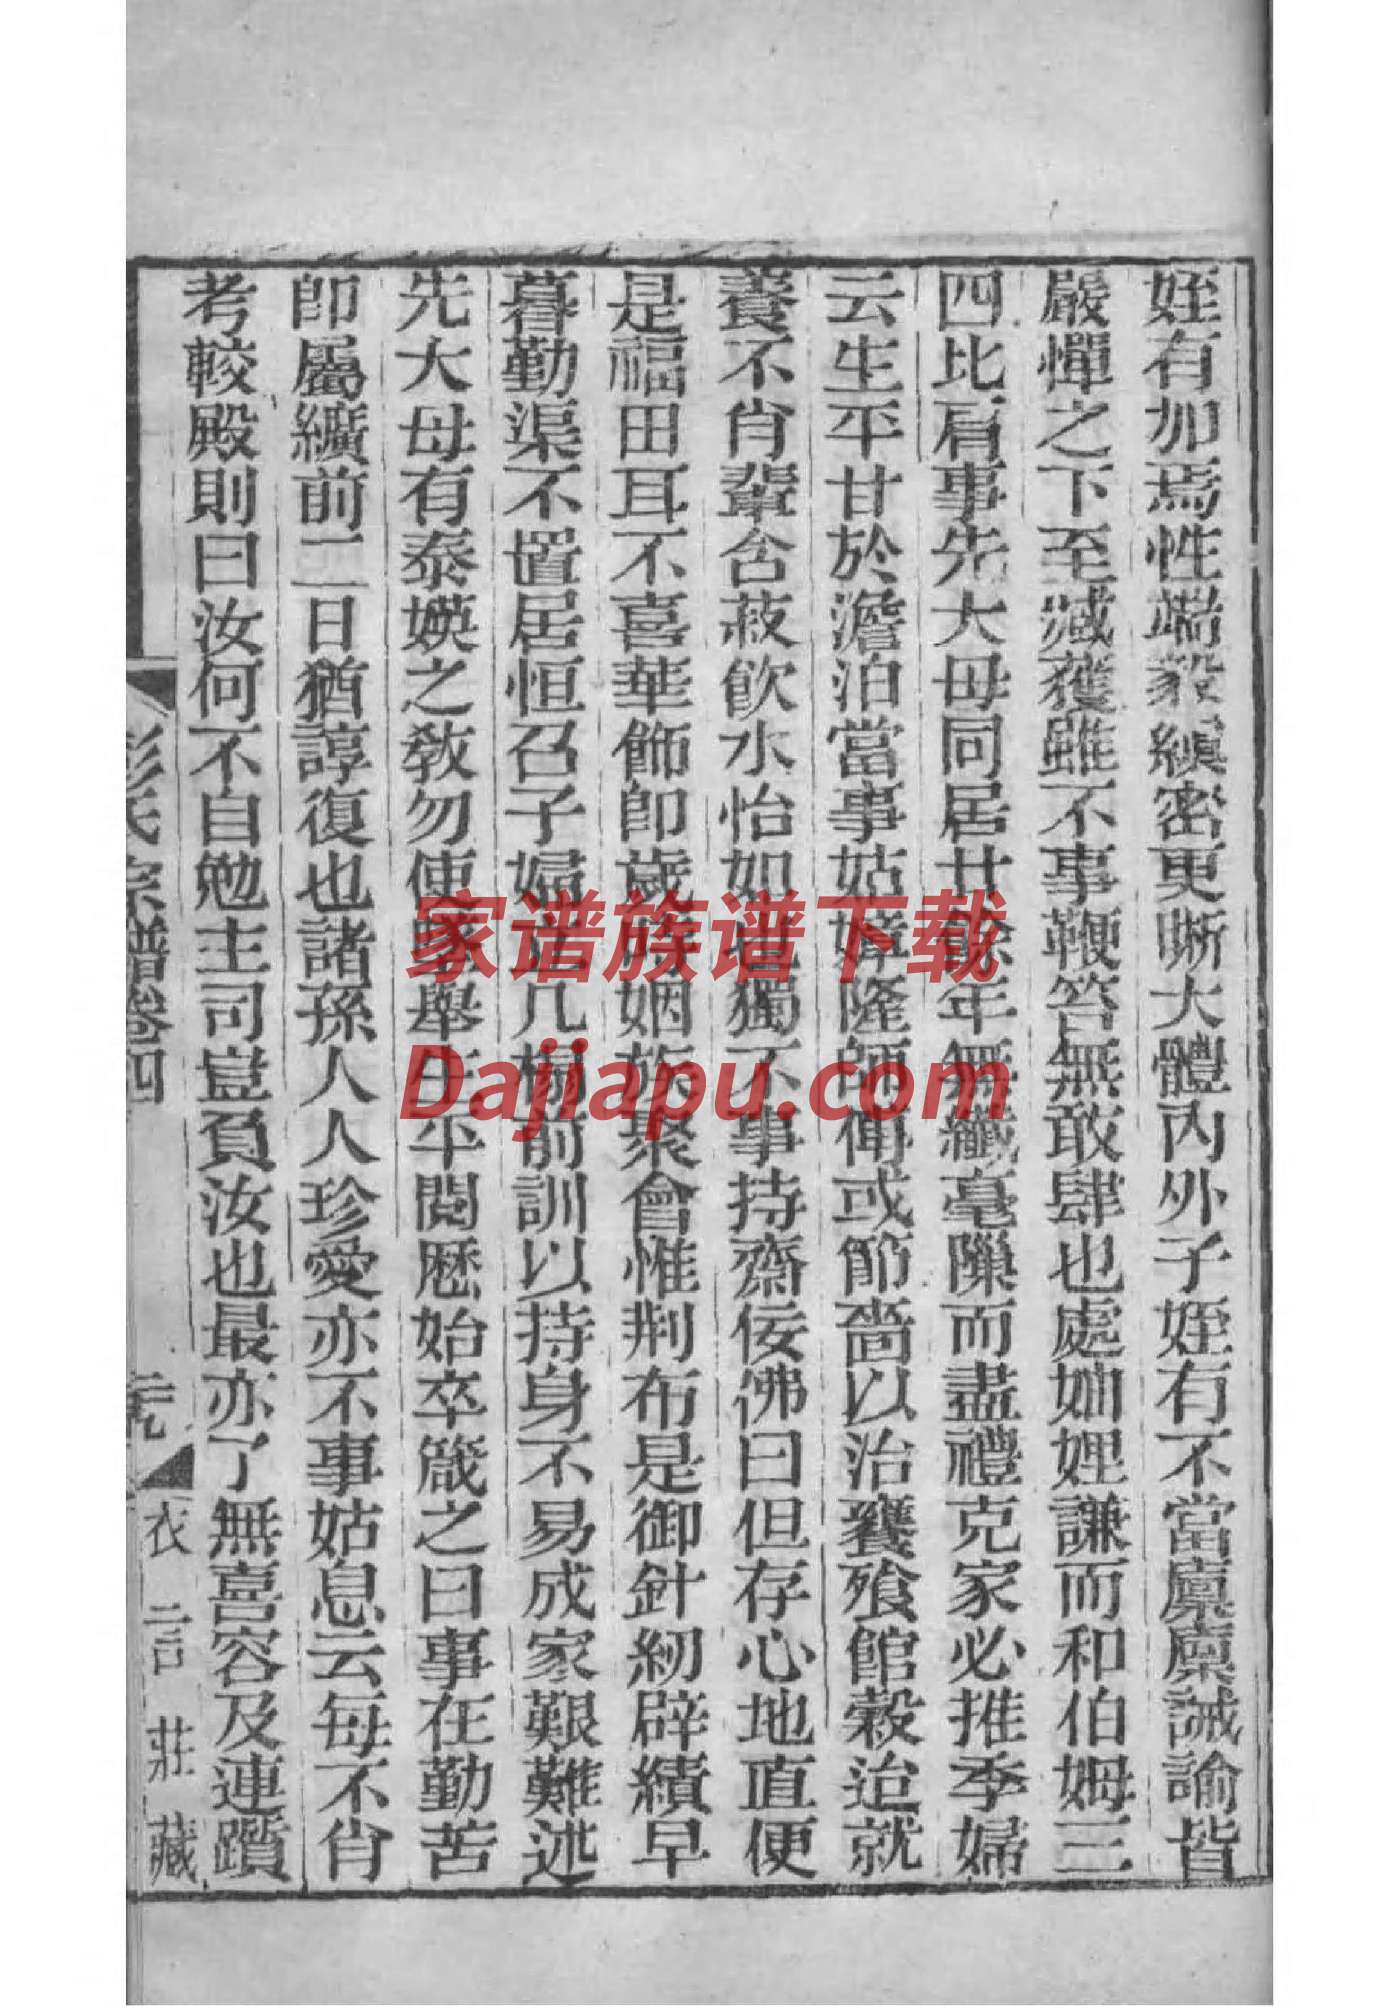 姪有加焉性端毅縝密更晰大體內外子姪有不當廩廩誡諭皆
嚴憚之下至滅獲雖不事鞭笞無敢肆也處妯娌謙而和伯姆三
四比肩事先大母同居廿餘年無纖毫隟而盡禮克家必推季婦
云生平甘於澹泊當事姑嫜隆師傅或節嗇以治饔飧館榖迨就
養不肖輩含菽飲水怡如也獨不事持齋佞佛曰但存心地直便
是福田耳不喜華飾卽歲時姻族聚會惟荆布是御針紉辟績早
暮勤渠不置居恒召子婦造几榻前訓以持身不易成家艱難述
先大母有泰媖之敎勿使墜舉生平閱歷始卒箴之曰事在勤苦
卽屬纊前一二日猶諄復也諸孫人人珍愛亦不事姑息云每不肖
考較殿則曰汝何不自勉主司豈負汝也最亦了無喜容及連躓
彭氏宗譜卷四
衣言莊藏
家谱族谱下载
Dajiapu.com